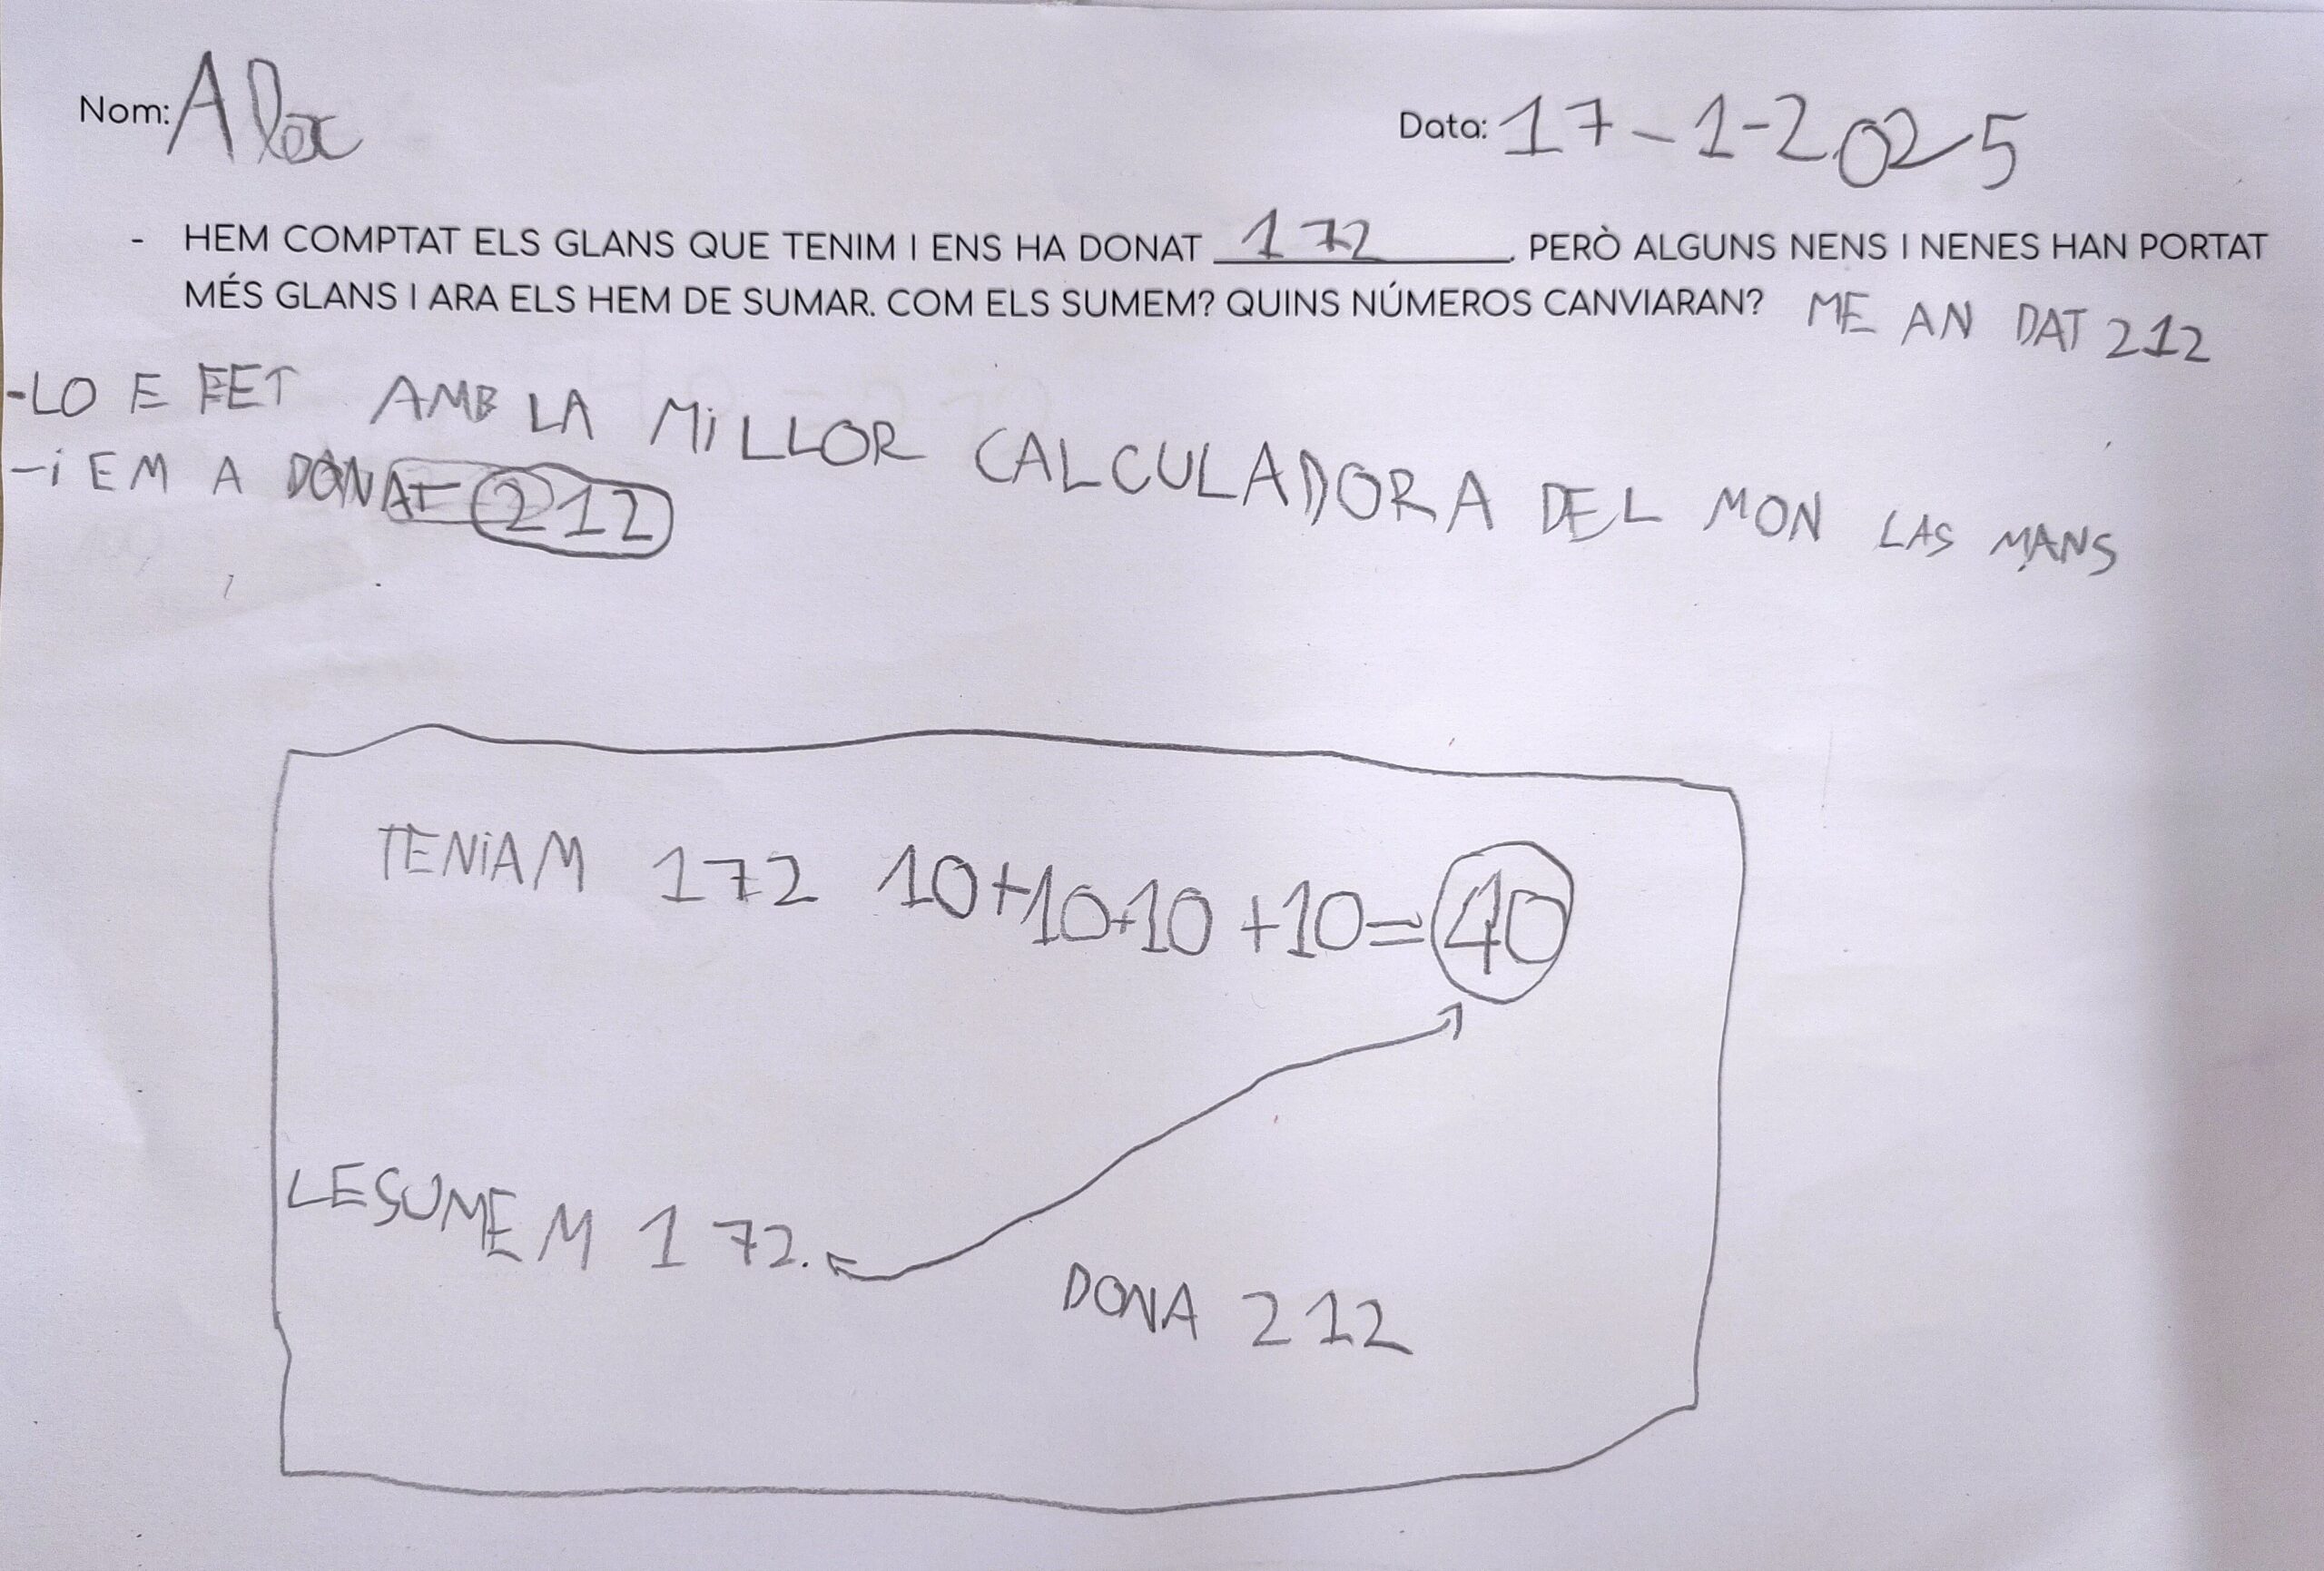 Nom: Alex Data: 17-1-2025
- HEM COMPTAT ELS GLANS QUE TENIM I ENS HA DONAT 172. PERÒ ALGUNS NENS I NENES HAN PORTAT
MÉS GLANS I ARA ELS HEM DE SUMAR. COM ELS SUMEM? QUINS NÚMEROS CANVIARAN? ME AN DAT 212
-LO E FET AMB LA MiLLOR CALCULADORA DEL MON LAS MANS
-i EM A DONAT 212
TENiAM 172 10+10+10+10=40
LESUMEM 172.
DONA 212